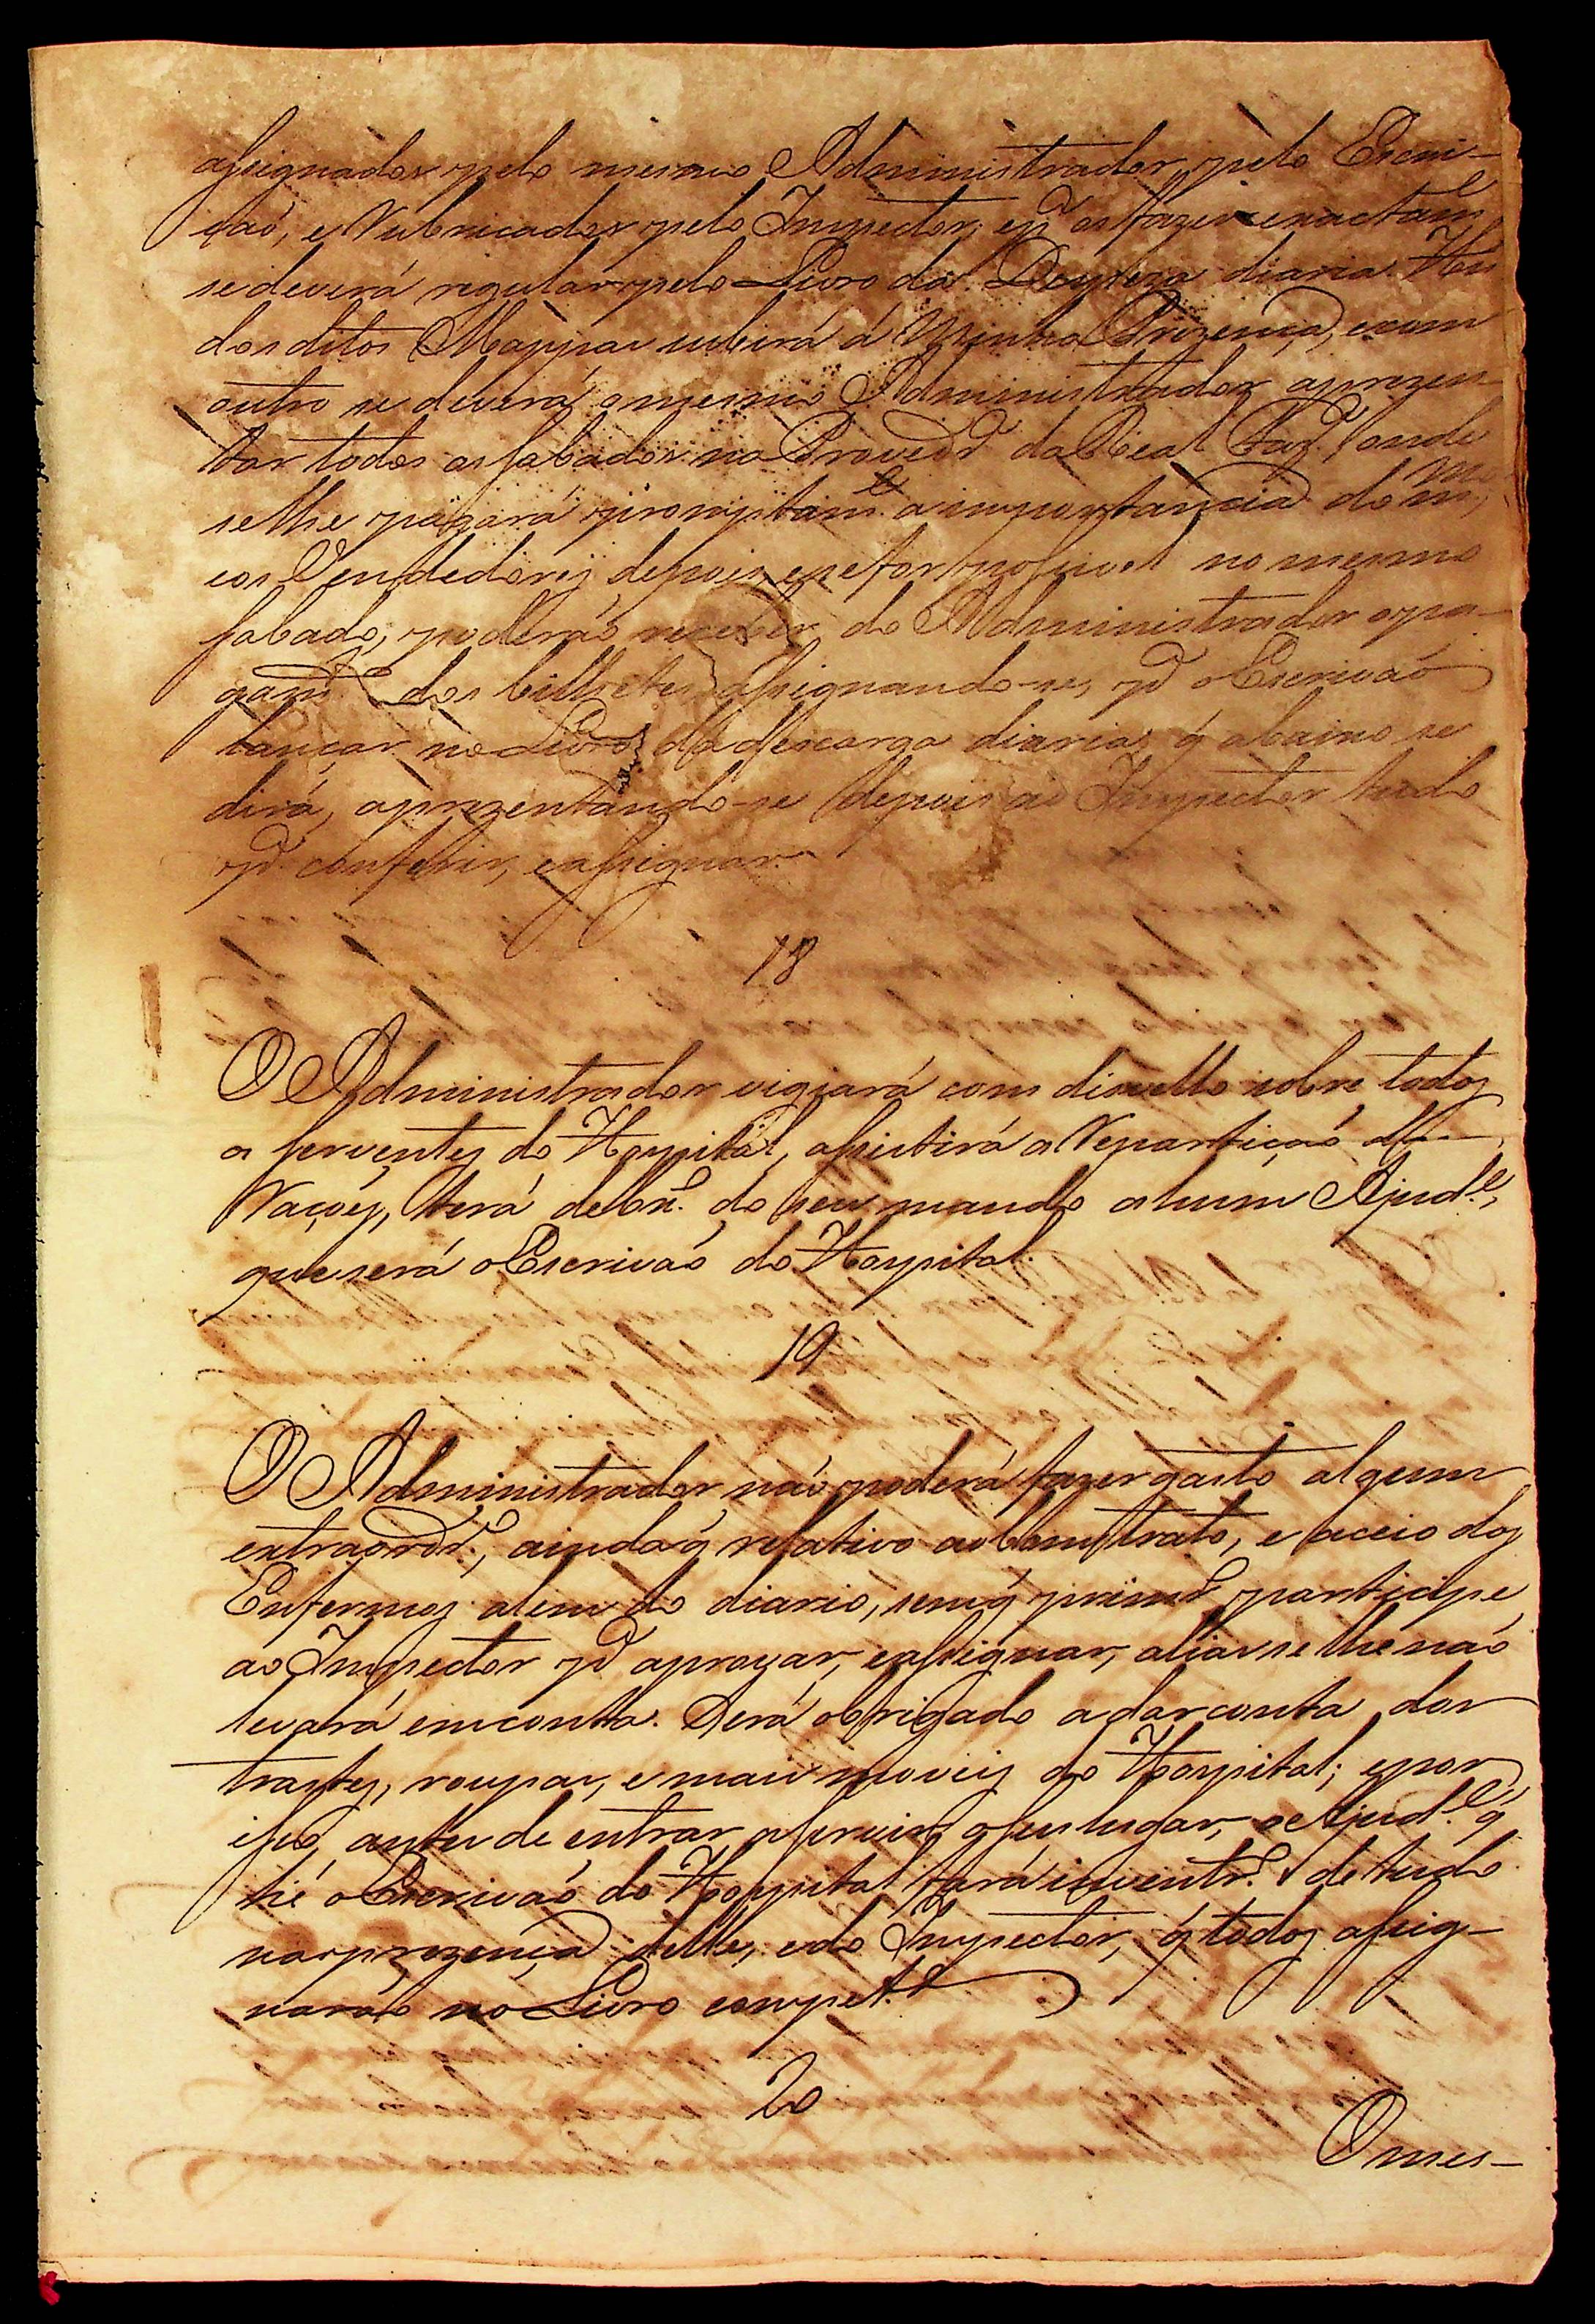 assignados pelo mesmo Administrador, pelo Escri-
vaõ, e Rubricados pelo Inspector, e pª os fazer exactamᵉ
se deverá regular pelo Livro da Despeza diaria. Hum
dos ditos Mappas subirá á Minha Prezença, e com
outro se deverá o mesmo Administrador aprezen-
tar todos os sabados na Provedª da Real Fazª, onde
se lhe pagará promptamᵉ a importancia do mᵐᵒ,
e os Vendedores depois, e se for possivel no mesmo
sabado, poderaõ receber do Administrador o pa-
gamᵗᵒ dos bilhetes assignando-se, pª o Escrivaõ
lançar no Livro da descarga diaria, q̃ abaixo se
dirá, aprezentando-se depois ao Inspector tudo
pª conferir, e assignar.
18
O Administrador vigiará com disvello sobre todos
os serventes do Hospital, assistirá a Repartiçaõ das
Raçoes, terá debxº do seu mando a hum Ajudᵉ,
que será o Escrivaõ do Hospital.
19
O Administrador naõ poderá fazer gasto algum
extraordrº, ainda q̃ relativo ao bom trato, e aceio dos
Enfermos alem do diario, sem q̃ primrº participe
ao Inspector pª aprovar, e assignar, alias se lhe naõ
levará em conta. Será obrigado a dar conta dos
trastes, roupas, e mais moveis do Hospital; e por
isso antes de entrar a servir o seu lugar, o Ajudᵉ q̃
hé o Escrivaõ do Hospital fará inventrº de tudo
na prezença delle, e do Inspector, q̃ todos assig-
naraõ no Livro competᵉ
20
O mes-